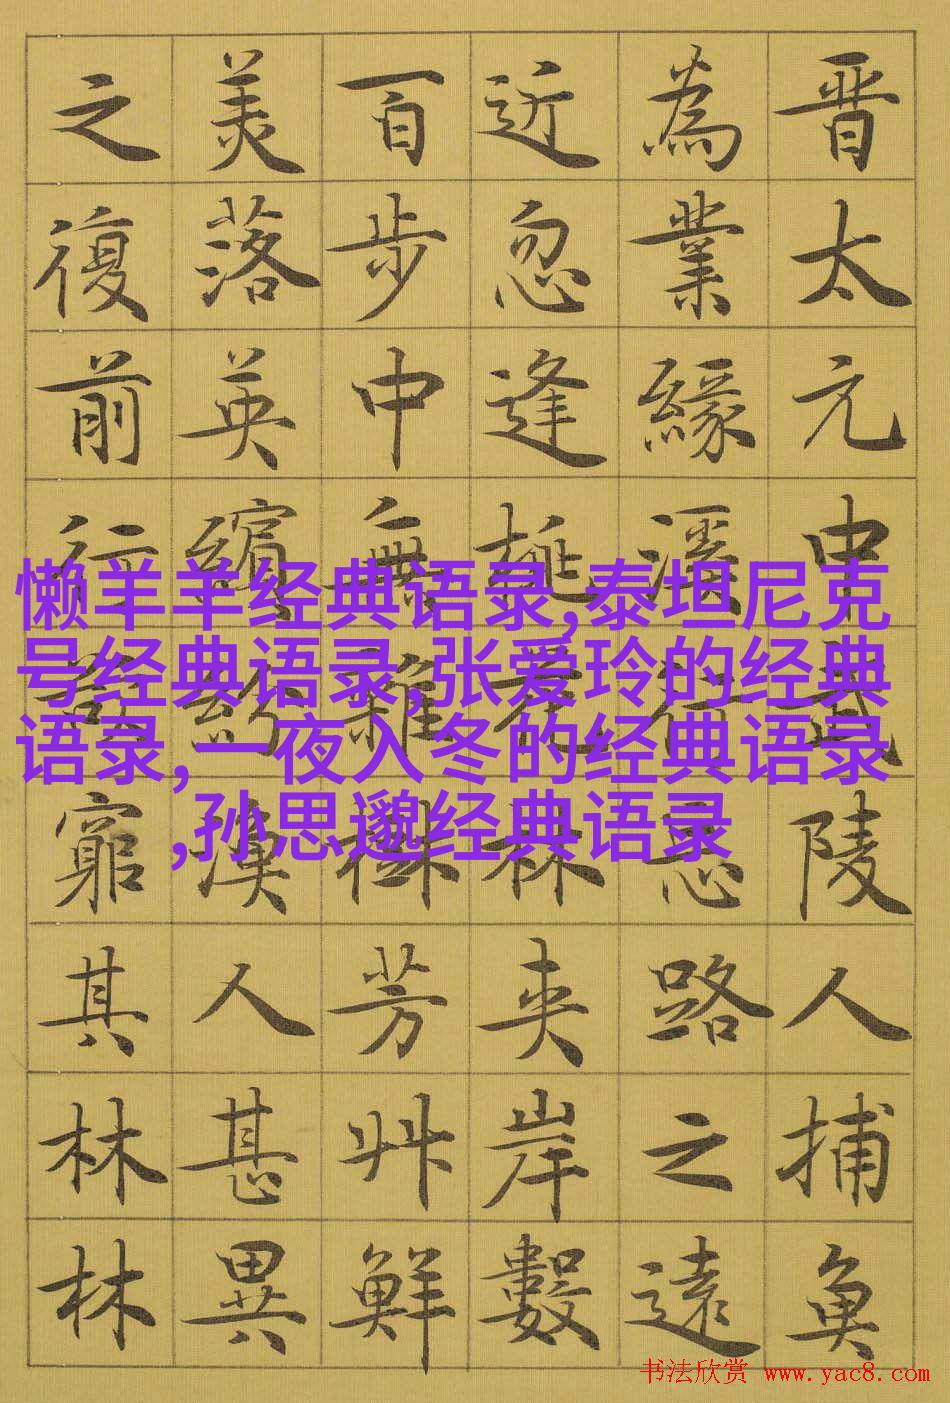 晋太元中武陵人捕魚
為業緣溪行忘路之遠
近忽逢桃花林夾岸數
百步中無雜樹芳艸鮮
美落英繽紛漁人甚異
之復前行欲窮其林林
懒羊羊经典语录,泰坦尼克
号经典语录,张爱玲的经典
语录,一夜入冬的经典语录
,孙思邈经典语录
书法欣赏 www.yac8.com